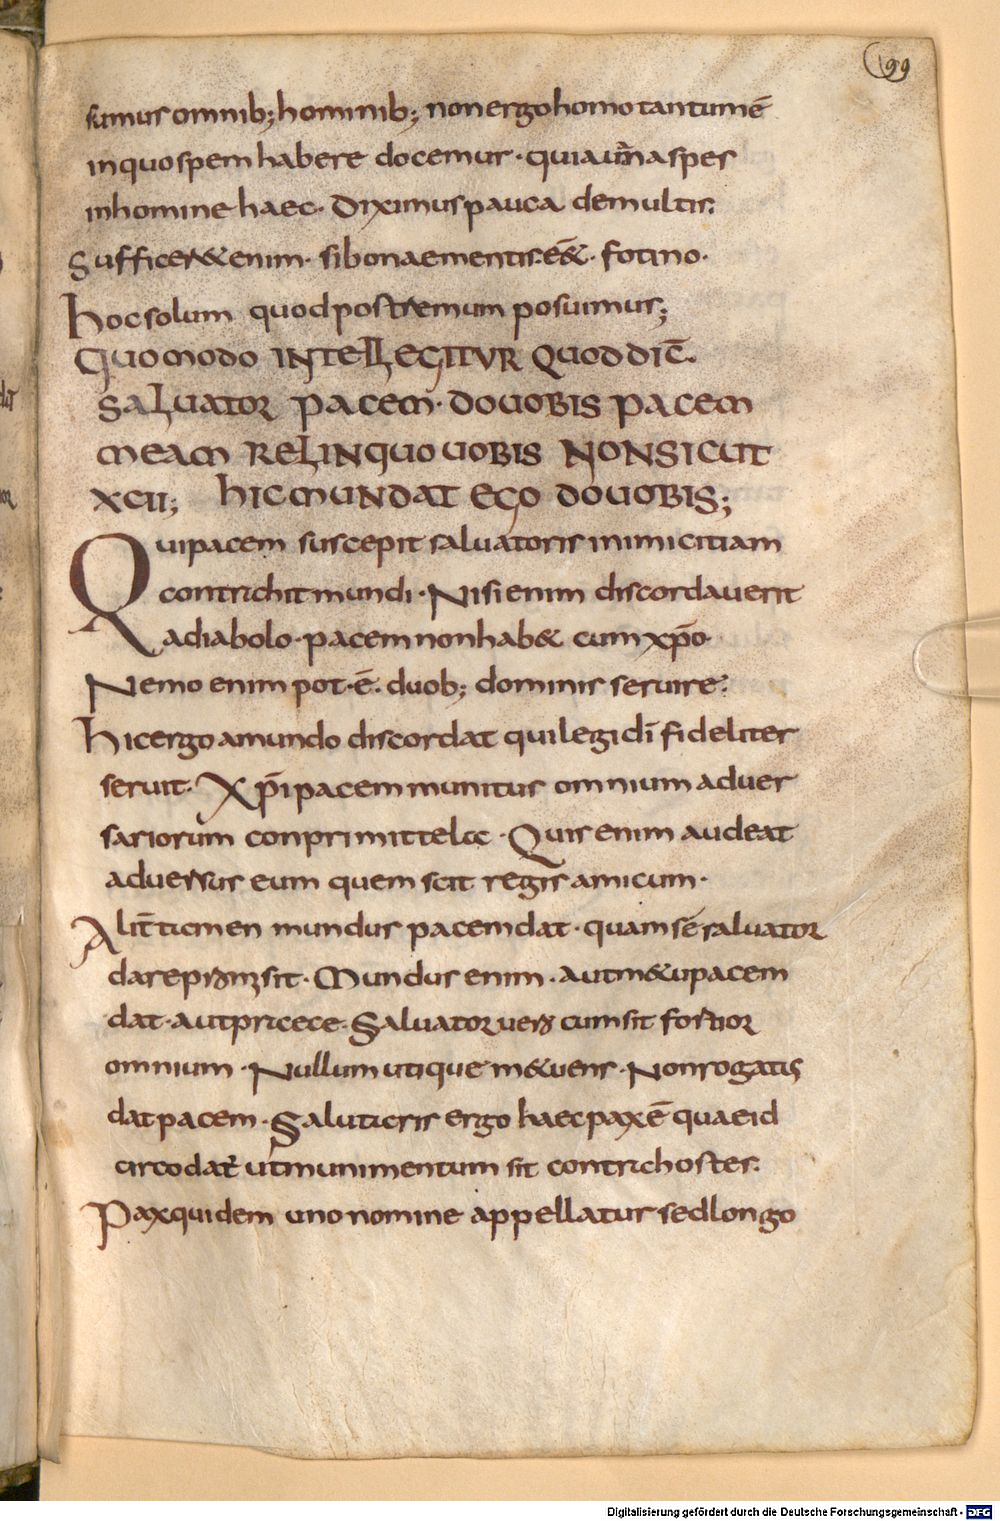 99
sumus omnib; hominib; non ergo homo tantum ē
in quo spem habere docemur · quia uana spes
in homine haec · Diximus pauca de multis.
Sufficer& enim · si bonae mentis ēe& · fotino ·
hoc solum quod postremum posuimus;
QUOMODO INTELLEGITUR QUOD DIC̄.
SALUATOR PACEM · DO UOBIS PACEM
MEAM RELINQUO UOBIS NON SICUT
XCII; HIC MUNDAT EGO DO UOBIS;
Qui pacem suscepit saluatoris inimicitiam
contrahit mundi · Nisi enim discordauerit
a diabolo · pacem non hab& cum xp̄o·
Nemo enim pot · ē · duob; dominis seruire.
hic ergo a mundo discordat qui legi dī fideliter
seruit · Xp̄i pacem munitur omnium aduer
sariorum conprimit tela · Quis enim audeat
aduersus eum quem scit regis amicum ·
Alit̄ tamen mundus pacem dat · quam sē saluator
dare · Mundus enim · aut m&u pacem
dat · aut prece · Saluator uero cum sit fortior
omnium · Nullum utique m&uens · Non rogatus
dat pacem · Salutaris ergo haec pax ē quae id
circo dat̄ ut munimentum sit contra hostes.
Pax quidem uno nomine appellatur sed longo
Digitalisierung gefördert durch die Deutsche Forschungsgemeinschaft - DFG